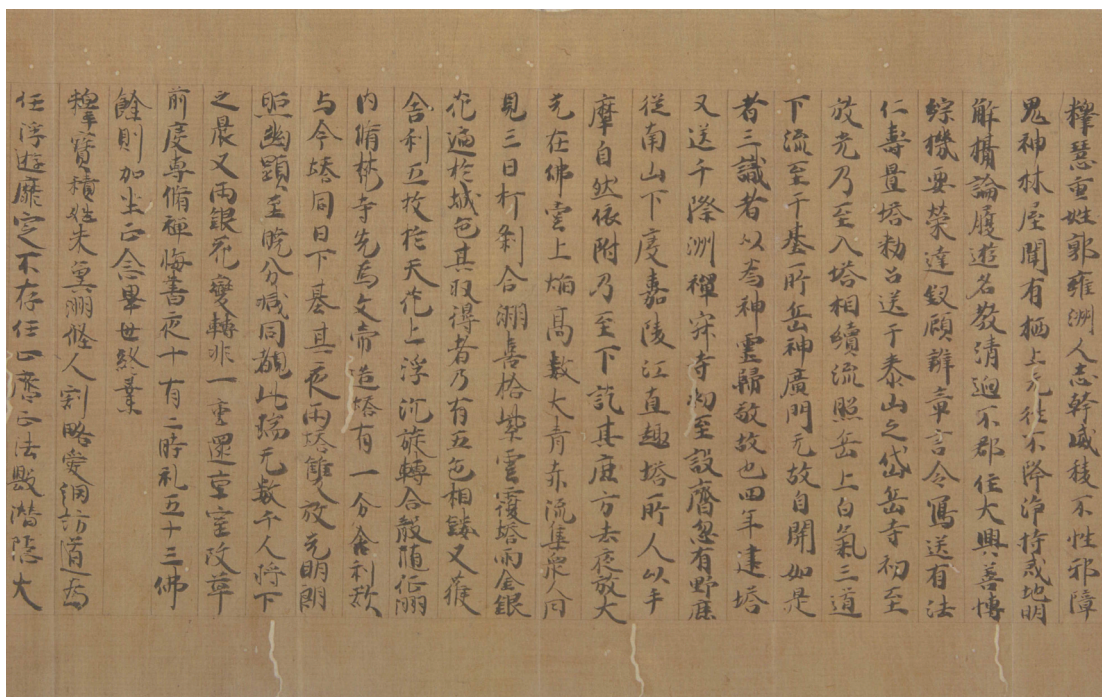 釋慧重姓郭雍洲人志幹威稜不性邪障
鬼神林屋聞有栖上无往不降淨持戒地明
解攝論履遊名教清迥不群住大興善博
綜機要榮達叙顧辯章言令寫送有法
仁壽置塔勑召送于泰山之岱岳寺初至
放光乃至入塔相續流照岳上白氣三道
下流至于基所岳神廣門无故自開如是
者三識者以為神靈歸敬故也四年建塔
又送于隆洲禪寂寺初至設齋忽有野鹿
從南山下度嘉陵江直趣塔所人以手
摩自然依附乃至下訖其鹿方去夜放大
光在佛堂上焰高數丈青赤流集眾人同
見三日打剎合洲喜捨紫雲覆塔雨金銀
花遍於城邑其取得者乃有五色相鏤又獲
舍利五枚於天花上浮沉旋轉合散隨心洲
內脩梵寺先為文帝造塔有一分舍利欲
与今塔同日下基其夜兩塔雙放光明朗
照幽顯至曉分滅同覩此瑞无數千人將下
之晨又雨銀花變轉非一重還京室改革
前度專脩禪悔晝夜十有二時礼五十三佛
餘則加坐正念畢世終業
釋寶積姓朱冀洲條人割略愛網訪道為
任浮遊靡定不存住止齊正法毀潛隱太